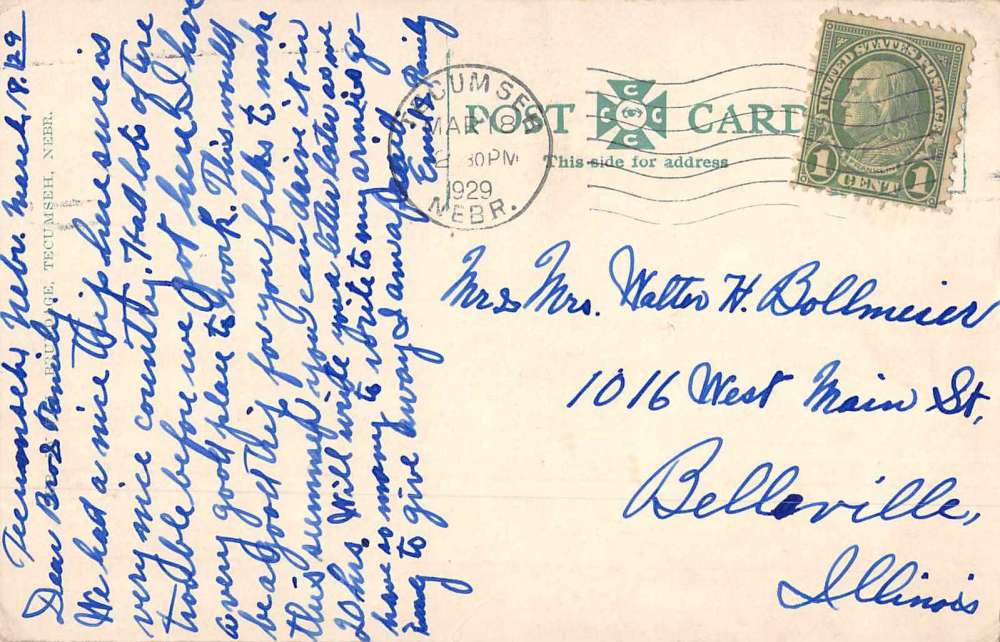 Tecumseh, Nebr. March, 18. /29
Dear Bro & Family.
We had a nice trip here sure is
very nice country. Had lots of tire
trouble before we got here I have
a very good place to work. This would
be a good trip for you folks to make
this summer, you can drive it in
20 hrs. Will write you a letter later as we
have so many to write to my arm is go-
ing to give away I am as dearth
Erwin & Family
BRUNDAGE, TECUMSEH, NEBR.
TECUMSEH
MAR 18
2 30 PM
1929
NEBR.
POST CARD
CCCC
This side for address
UNITED STATES POSTAGE
1 CENT 1
Mr & Mrs. Walter H. Bollmeier
1016 West Main St,
Belleville,
Illinois